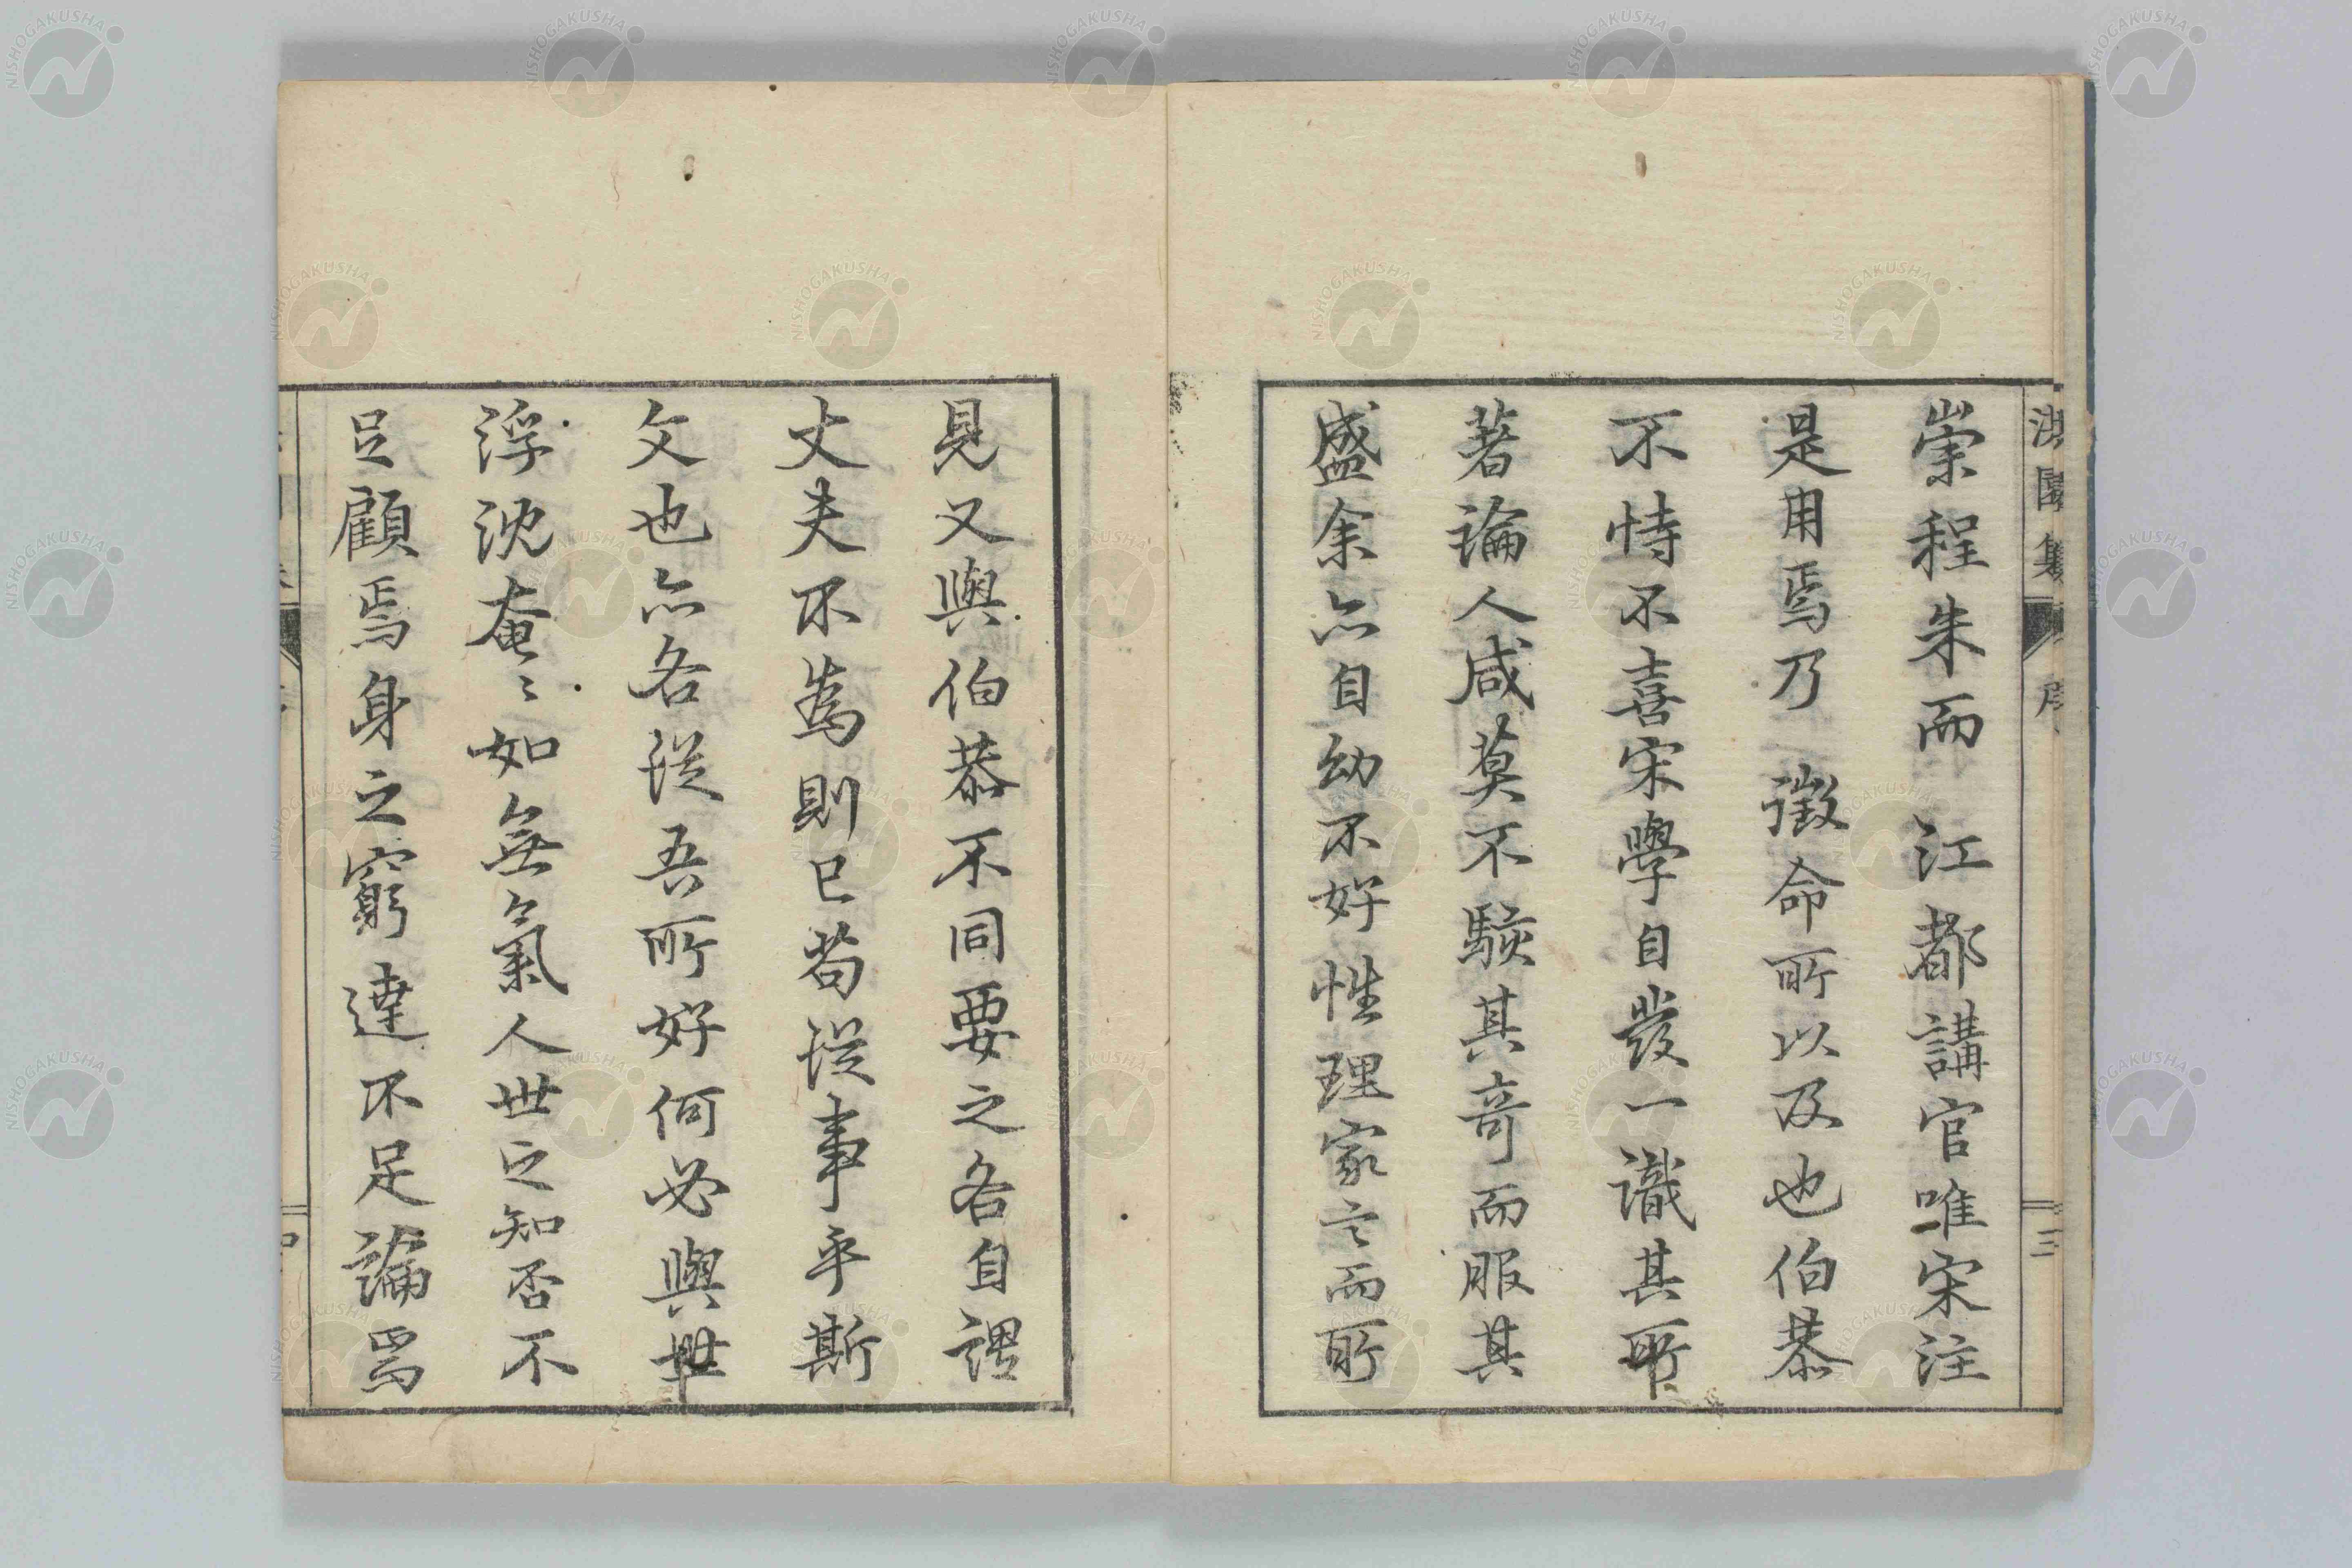 淇園集
序
三
崇程朱而 江都講官唯宋注
是用焉乃 徵命所以及也伯恭
不特不喜宋學自發一識其所
著論人咸莫不駭其奇而服其
盛余亦自幼不好性理家言而所
見又與伯恭不同要之各自謂
丈夫不為則已苟從事乎斯
文也亦各從吾所好何必與世
浮沈奄〻如無氣人世之知否不
足顧焉身之窮達不足論焉
NISHOGAKUSHA